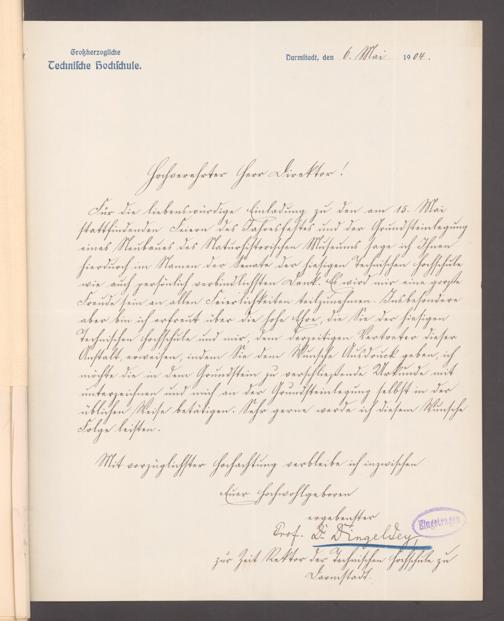 Großherzogliche
Technische Hochschule.
Darmstadt, den 6. Mai 1904.
Hochverehrter Herr Direktor!
Für die liebenswürdige Einladung zu den am 15. Mai
stattfindenden Feiern des Jahresfestes und der Grundsteinlegung
eines Neubaues des Naturhistorischen Museums sage ich Ihnen
hierdurch im Namen des Senats der hiesigen Technischen Hochschule
wie auch persönlich verbindlichsten Dank. Es wird mir eine große
Freude sein an allen Feierlichkeiten teilzunehmen. Insbesondere
aber bin ich erfreut über die hohe Ehre, die Sie der hiesigen
Technischen Hochschule und mir, dem derzeitigen Vertreter dieser
Anstalt, erweisen, indem Sie dem Wunsche Ausdruck geben, ich
möchte die in dem Grundstein zu verschließende Urkunde mit
unterzeichnen und mich an der Grundsteinlegung selbst in der
üblichen Weise betätigen. Sehr gerne werde ich diesem Wunsche
Folge leisten.
Mit vorzüglichster Hochachtung verbleibe ich inzwischen
Euer Hochwohlgeboren
ergebenster
Prof. Dr. Dingeldey,
zur Zeit Rektor der Technischen Hochschule zu
Darmstadt.
Eingetragen